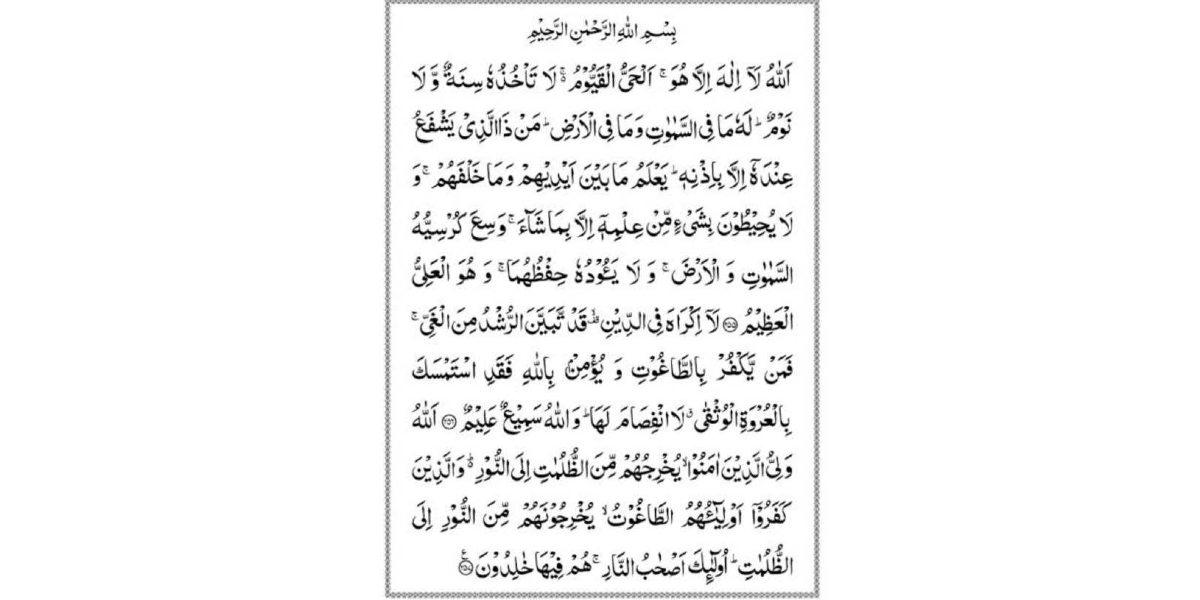 بِسْمِ اللهِ الرَّحْمٰنِ الرَّحِيْمِ
اَللهُ لَآ اِلٰهَ اِلَّا هُوَ ۚ اَلْحَيُّ الْقَيُّوْمُ ۚ لَا تَاْخُذُهٗ سِنَةٌ وَّ لَا
نَوْمٌ ؕ لَهٗ مَا فِی السَّمٰوٰتِ وَ مَا فِی الْاَرْضِ ؕ مَنْ ذَا الَّذِیْ یَشْفَعُ
عِنْدَهٗۤ اِلَّا بِاِذْنِهٖ ؕ یَعْلَمُ مَا بَیْنَ اَیْدِیْهِمْ وَ مَا خَلْفَهُمْ ۚ وَ
لَا یُحِیْطُوْنَ بِشَیْءٍ مِّنْ عِلْمِهٖۤ اِلَّا بِمَا شَآءَ ۚ وَسِعَ كُرْسِیُّهُ
السَّمٰوٰتِ وَ الْاَرْضَ ۚ وَ لَا یَـُٔوْدُهٗ حِفْظُهُمَا ۚ وَ هُوَ الْعَلِیُّ
الْعَظِیْمُ ﴿۲۵۵﴾ لَاۤ اِكْرَاهَ فِی الدِّیْنِ ۟ۙ قَدْ تَّبَیَّنَ الرُّشْدُ مِنَ الْغَیِّ ۚ
فَمَنْ یَّكْفُرْ بِالطَّاغُوْتِ وَ یُؤْمِنْۢ بِاللهِ فَقَدِ اسْتَمْسَكَ
بِالْعُرْوَةِ الْوُثْقٰی ۗ لَا انْفِصَامَ لَهَا ؕ وَ اللهُ سَمِیْعٌ عَلِیْمٌ ﴿۲۵۶﴾ اَللهُ
وَلِیُّ الَّذِیْنَ اٰمَنُوْا ۙ یُخْرِجُهُمْ مِّنَ الظُّلُمٰتِ اِلَی النُّوْرِ ؕ۬ وَ الَّذِیْنَ
كَفَرُوْۤا اَوْلِیٰٓـُٔهُمُ الطَّاغُوْتُ ۙ یُخْرِجُوْنَهُمْ مِّنَ النُّوْرِ اِلَی
الظُّلُمٰتِ ؕ اُولٰٓئِكَ اَصْحٰبُ النَّارِ ۚ هُمْ فِیْهَا خٰلِدُوْنَ ﴿۲۵۷﴾